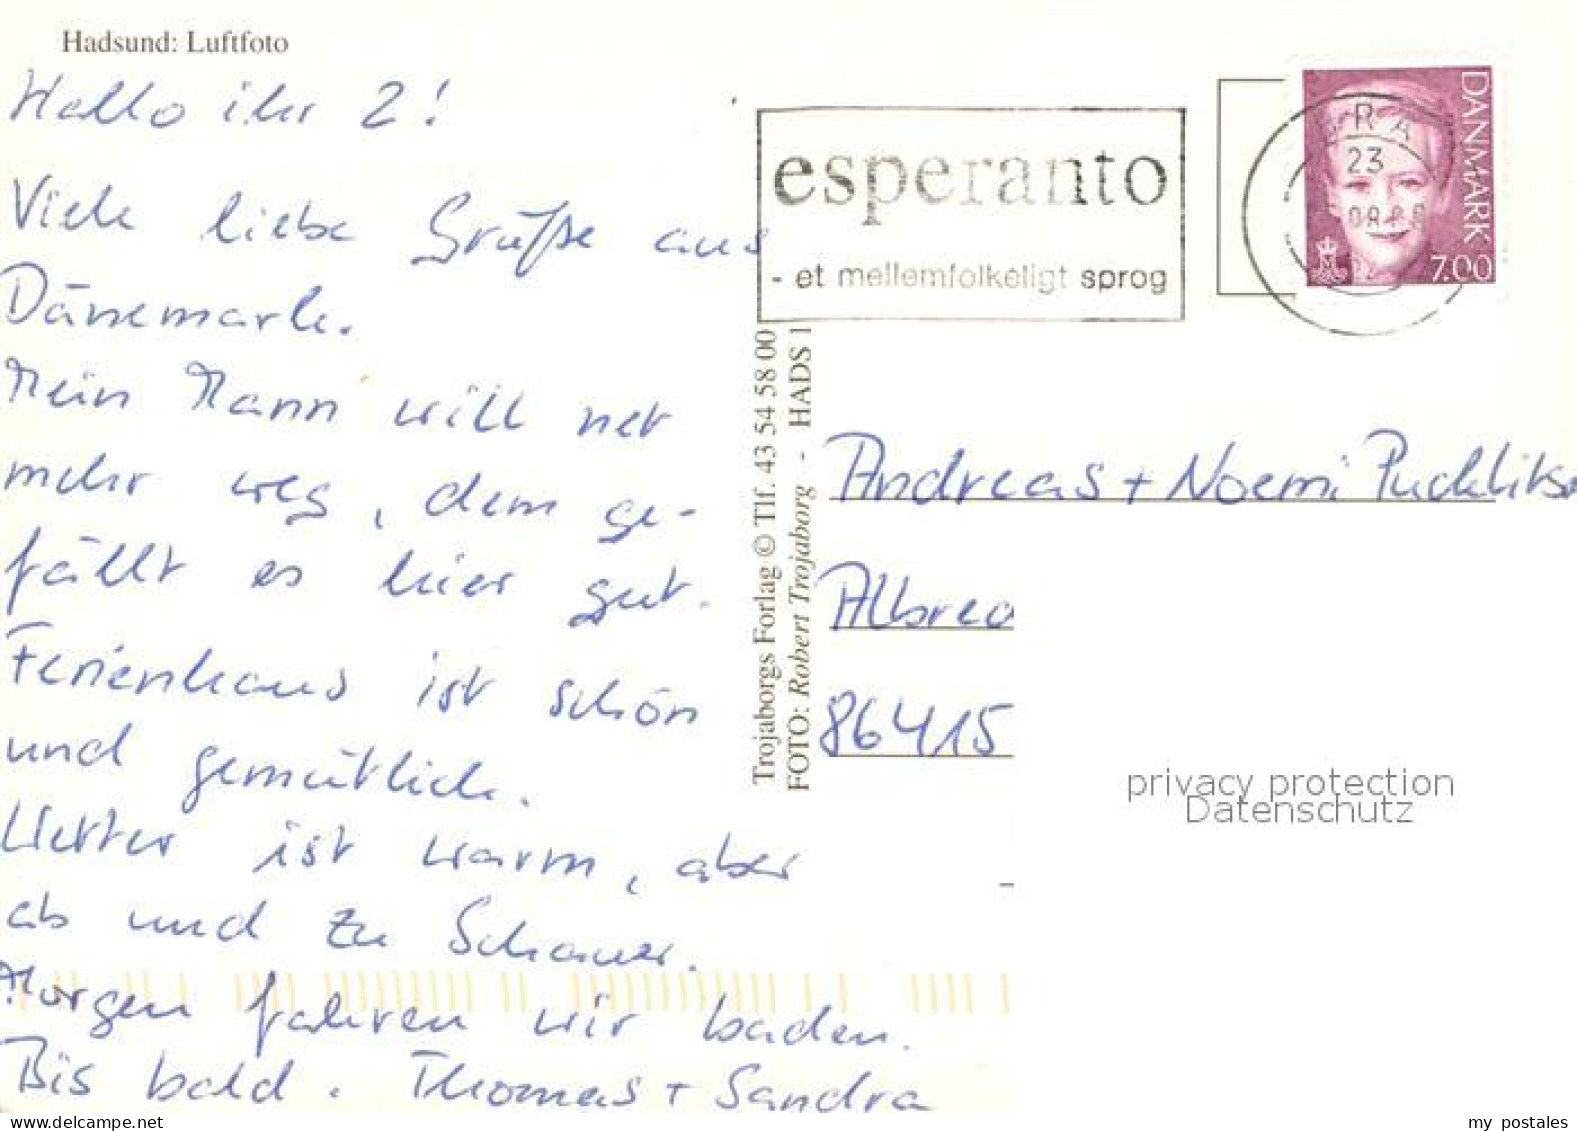 Hadsund: Luftfoto
Hallo ihr 2!
Viele liebe Grüße aus
Dänemark.
Mein Mann will net
mehr weg, dem ge-
fällt es hier gut.
Ferienhaus ist schön
und gemütlich.
Wetter ist warm, aber
ab und zu Schauer.
Morgen fahren wir baden.
Bis bald. Thomas + Sandra
esperanto
- et mellemfolkeligt sprog
BRA
23
DANMARK
7.00
Trojaborgs Forlag © Tlf. 43 54 58 00
FOTO: Robert Trojaborg - HADS 1
Andreas + Noemi
Albrec
86415
privacy protection
Datenschutz
my postales